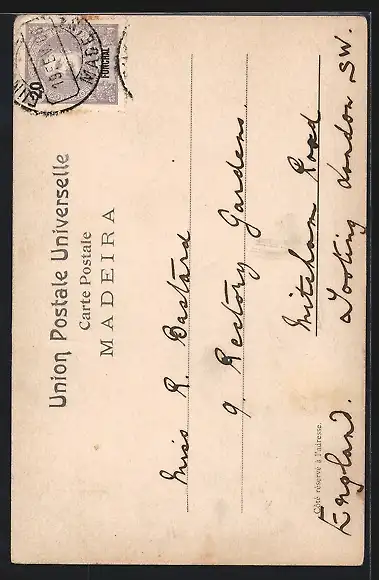 Union Postale Universelle
Carte Postale
MADEIRA
FUNCHAL
20
MADEI
Miss R. Bastard
9. Rectory Gardens.
Mitcham Road
Tooting London SW.
England.
Côté réservé à l'adresse.